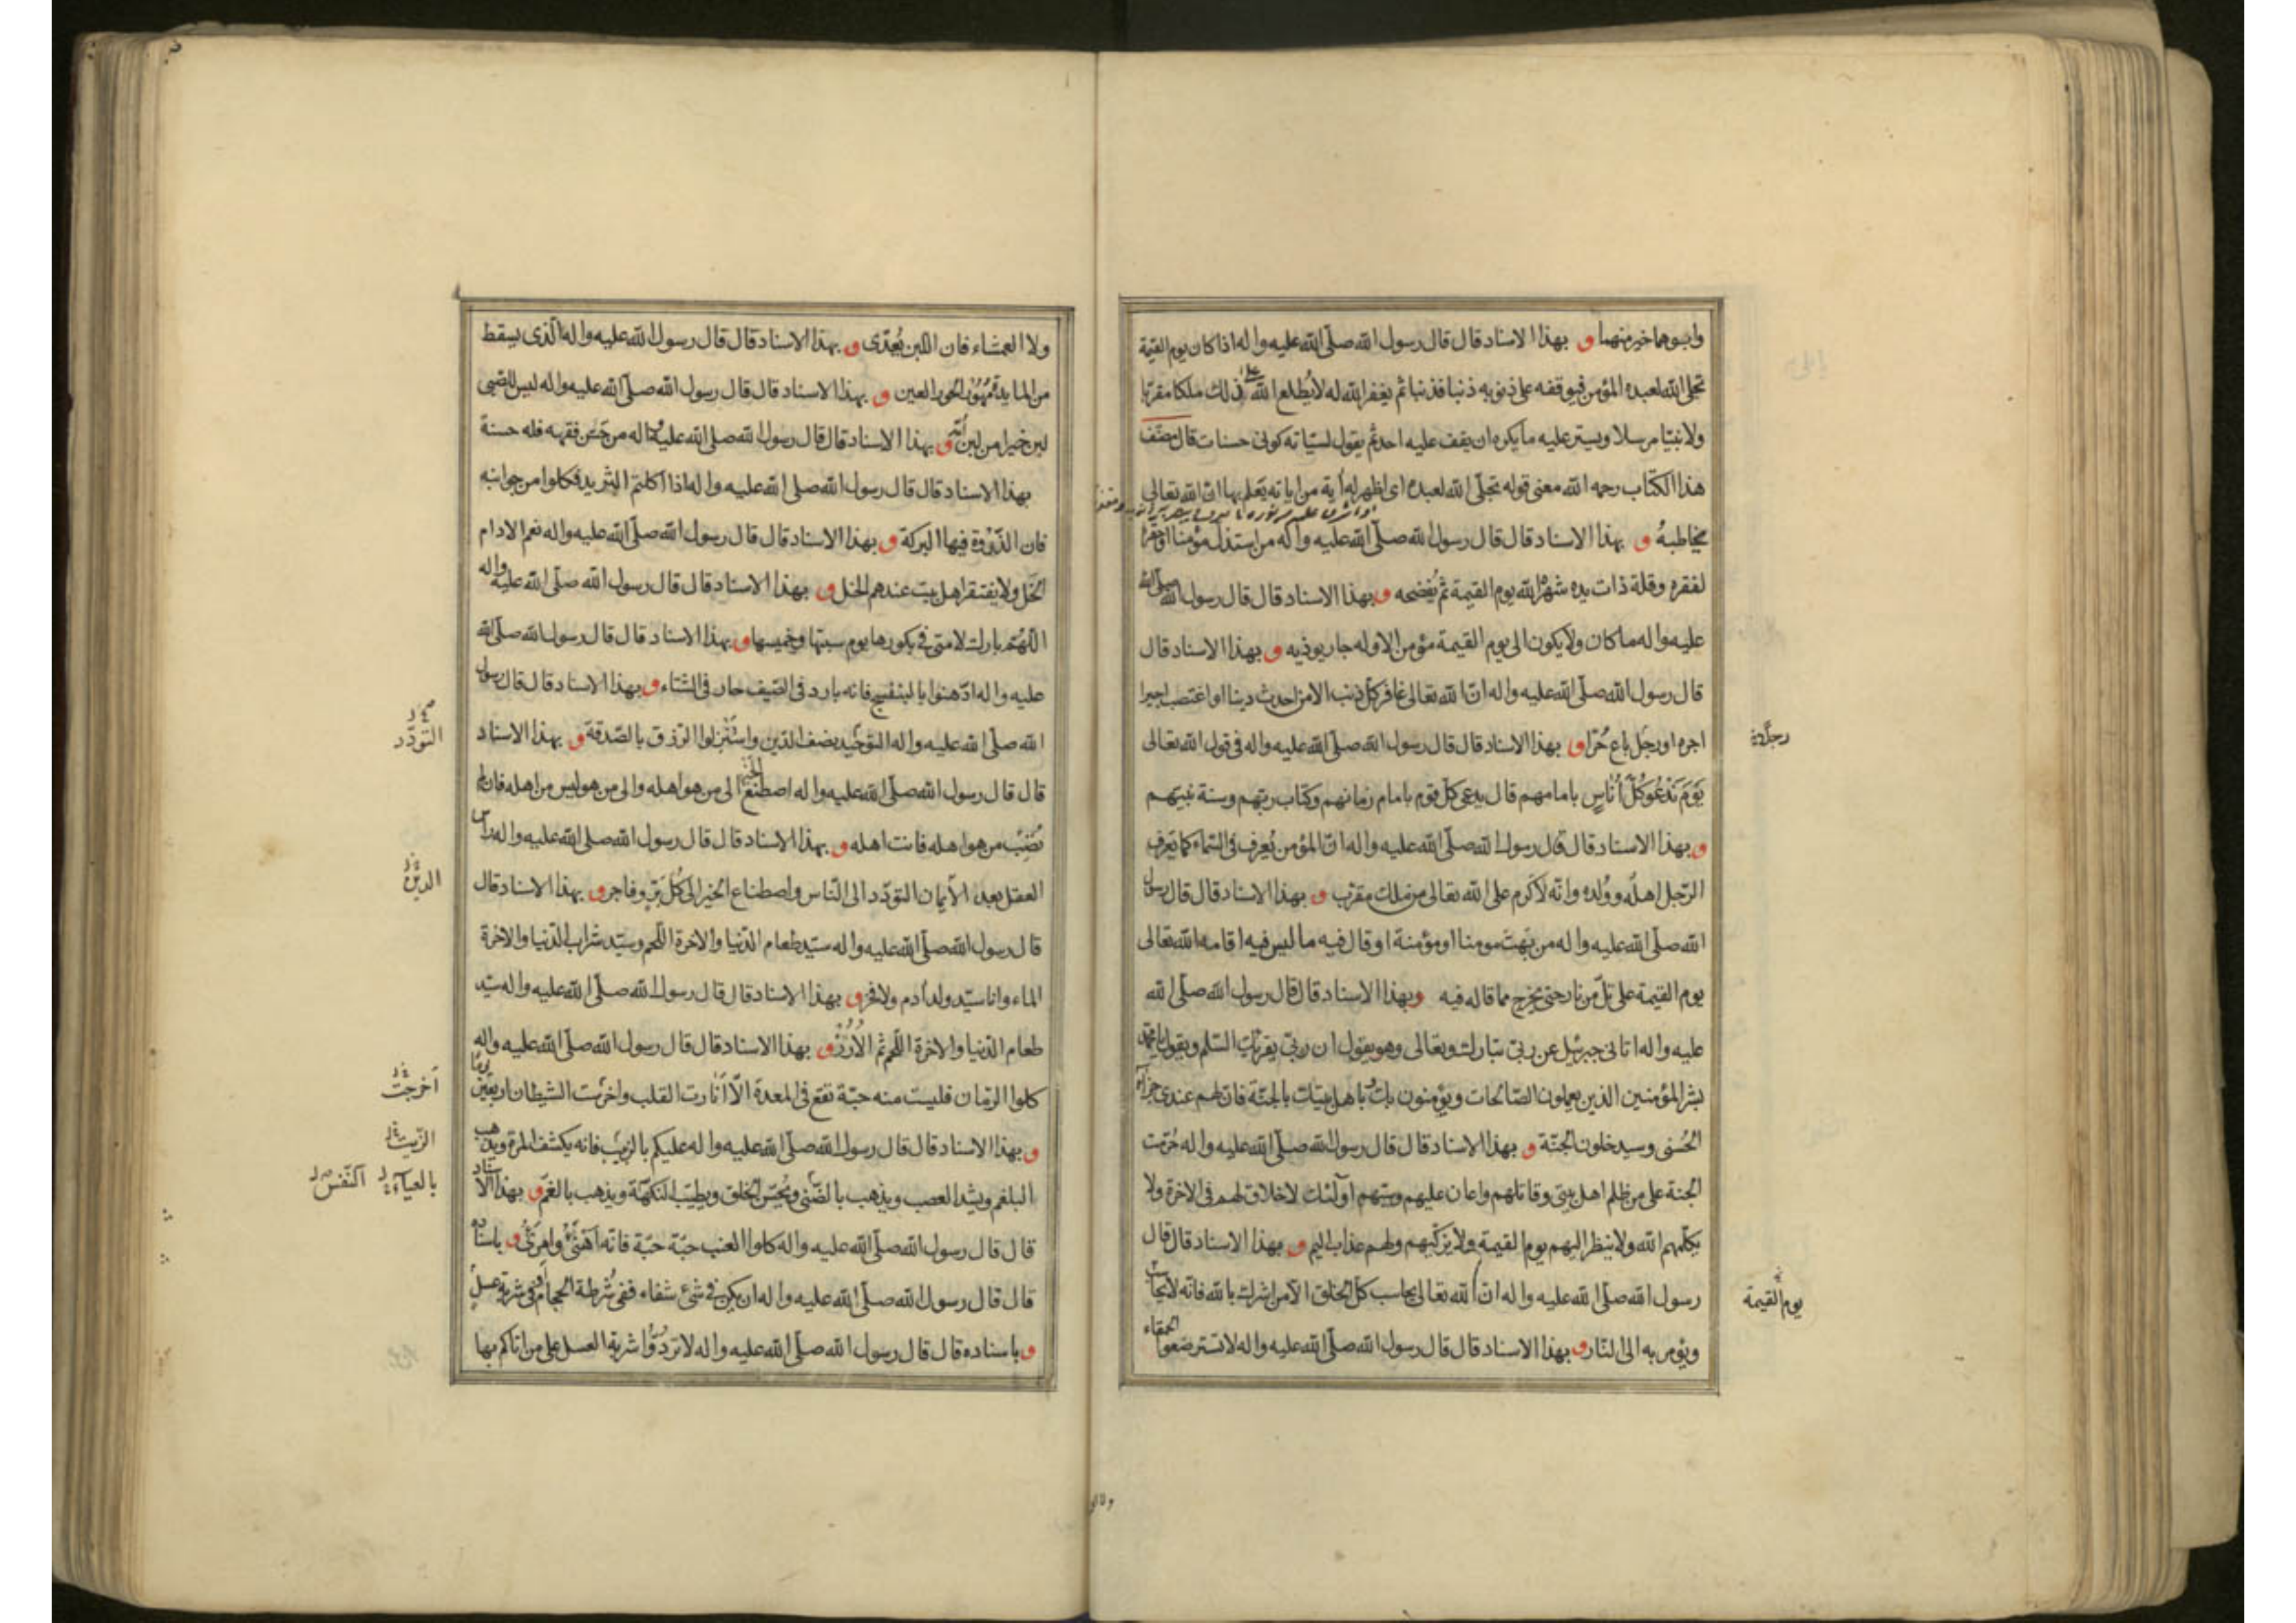 وابوهما خير منهما و بهذا الاسناد قال قال رسول الله صلّى الله عليه واله اذا كان يوم القيمة
تجلى الله لعبده المؤمن فيوقفه على ذنوبه ذنبا فذنبا ثم يغفر الله له لا يُطلع الله على ذلك ملكا مقربا
ولا نبيّا مرسلا ويستر عليه ما يكره ان يقف عليه احد ثم يقول لسيّاته كونى حسنات قال مصنف
هذا الكتاب رحمه الله معنى قوله تجلّى الله لعبده اى اظهر له آية من اياته يعلم بها ان الله تعالى
مخاطبهُ و بهذا الاسناد قال قال رسول الله صلّى الله عليه واله من استذل مؤمنا او حقرا
لفقره وقلة ذات يده شهره الله يوم القيمة ثم يُفضحه و بهذا الاسناد قال قال رسول الله صلّى الله
عليه واله ما كان ولا يكون الى يوم القيمة مؤمن الا وله جار يوذيه و بهذا الاسناد قال
قال رسول الله صلّى الله عليه واله انّ الله تعالى غافر كل ذنب الا من احدث دينا او اغتصب اجيرا
اجره او رجل باع حُرّا و بهذا الاسناد قال قال رسول الله صلّى الله عليه واله فى قول الله تعالى
يَوْمَ نَدْعُو كُلَّ اُنَاسٍ بامامهم قال يدعى كل قوم بامام زمانهم وكتاب ربّهم وسنة نبيّهم
و بهذا الاسناد قال قال رسول الله صلّى الله عليه واله انّ المؤمن يُعرف فى السّماء كما يَعرف
الرّجل اهله وولده وانّه لاَكرم على الله تعالى من ملك مقرّب و بهذا الاسناد قال قال رسول
الله صلّى الله عليه واله من بَهَتَ مومنا او مؤمنة او قال فيه ما ليس فيه اقامه الله تعالى
يوم القيمة على تلّ من نار حتى يخرج مما قاله فيه وبهذا الاسناد قال قال رسول الله صلّى الله
عليه واله اتانى جبرئيل عن ربّى تبارك وتعالى وهو يقول ان ربّى يقرئك السّلم ويقول يا محمّد
بشر المؤمنين الذين يعملون الصّالحات ويؤمنون بك وباهل بيتك بالجنّة فان لهم عندى جزاء
الحُسنى وسيدخلون الجنّة و بهذا الاسناد قال قال رسول الله صلّى الله عليه واله حُرّمت
الجنة على من ظلم اهل بيتى وقاتلهم واعان عليهم وسبّهم اولئك لا خلاق لهم فى الاخرة ولا
يكلّمهم الله ولا ينظر اليهم يوم القيمة ولا يزكّيهم ولهم عذاب اليم و بهذا الاسناد قال قال
رسول الله صلّى الله عليه واله انّ الله تعالى يحاسب كل الخلق الا من اشرك بالله فانّه لا يحاسب
ويؤمر به الى النّار و بهذا الاسناد قال قال رسول الله صلّى الله عليه واله لا تسترضعوا الحمقاء
يوم القيمة
ولا العمشاء فان اللّبن يُعدّى و بهذا الاسناد قال قال رسول الله عليه واله الّذى يسقط
من المايدة مُهُوْرُ الحور العين و بهذا الاسناد قال قال رسول الله صلّى الله عليه واله ليس للصّبى
لبن خيرا من لبن اُمّه و بهذا الاسناد قال قال رسول الله صلى الله عليه واله من حسن فقهه فله حسنة
بهذا الاسناد قال قال رسول الله صلى الله عليه واله اذا اكلتم الثريد فكلوا من جوانبه
فان الذّرْوَة فيها البركة و بهذا الاسناد قال قال رسول الله صلّى الله عليه واله نعم الادام
الخَل ولا يفتقر اهل بيت عندهم الخل و بهذا الاسناد قال قال رسول الله صلّى الله عليه واله
اللّهُمّ بارك لامتى فى بكورها يوم سبتها وخميسها و بهذا الاسناد قال قال رسول الله صلّى الله
عليه واله ادّهنوا بالبنفسج فانه بارد فى الصّيف حار فى الشّتاء و بهذا الاسناد قال قال رسول
الله صلّى الله عليه واله التوحيد نصف الدّين واستنزلوا الرّزق بالصّدقة و بهذا الاسناد
قال قال رسول الله صلّى الله عليه واله اصطنع الخير الى من هو اهله والى من هو ليس من اهله فان لم
تُصِبْ من هو اهله فانت اهله و بهذا الاسناد قال قال رسول الله صلى الله عليه واله راس
العقل بعد الايمان التودّد الى النّاس واصطناع الخير الى كُل بَرّ وفاجر و بهذا الاسناد قال
قال رسول الله صلّى الله عليه واله سيّد طعام الدّنيا والاخرة اللّحم وسيّد شراب الدّنيا والاخرة
الماء وانا سيّد ولد آدم ولا فخر و بهذا الاسناد قال قال رسول الله صلّى الله عليه واله سيّد
طعام الدّنيا والاخرة اللّحم ثم الاُرُزّ و بهذا الاسناد قال قال رسول الله صلّى الله عليه واله
كلوا الرّمّان فليست منه حبّة تقع فى المعدة الّا اَنَارت القلب واخرست الشيطان اربعين يومًا
و بهذا الاسناد قال قال رسول الله صلّى الله عليه واله عليكم بالزبيب فانه يكشف المرة ويذهب
البلغم ويشد العصب ويذهب بالضّنى ويُحسّن الخلق ويطيّب النكهة ويذهب بالغمّ و بهذا الاسناد
قال قال رسول الله صلّى الله عليه واله كلوا العنب حبّة حبّة فانّه اَهْنَى وامرَئُ و باسناده
قال قال رسول الله صلّى الله عليه واله ان يكن فى شئ شفاء ففى شُرطة الحجام او فى شربة عسل
و باسناده قال قال رسول الله صلّى الله عليه واله لا تردّوا شربة العسل على من اتاكم بها
التودّد
الدين
اخرجت
الزيت
بالعياء النّفس